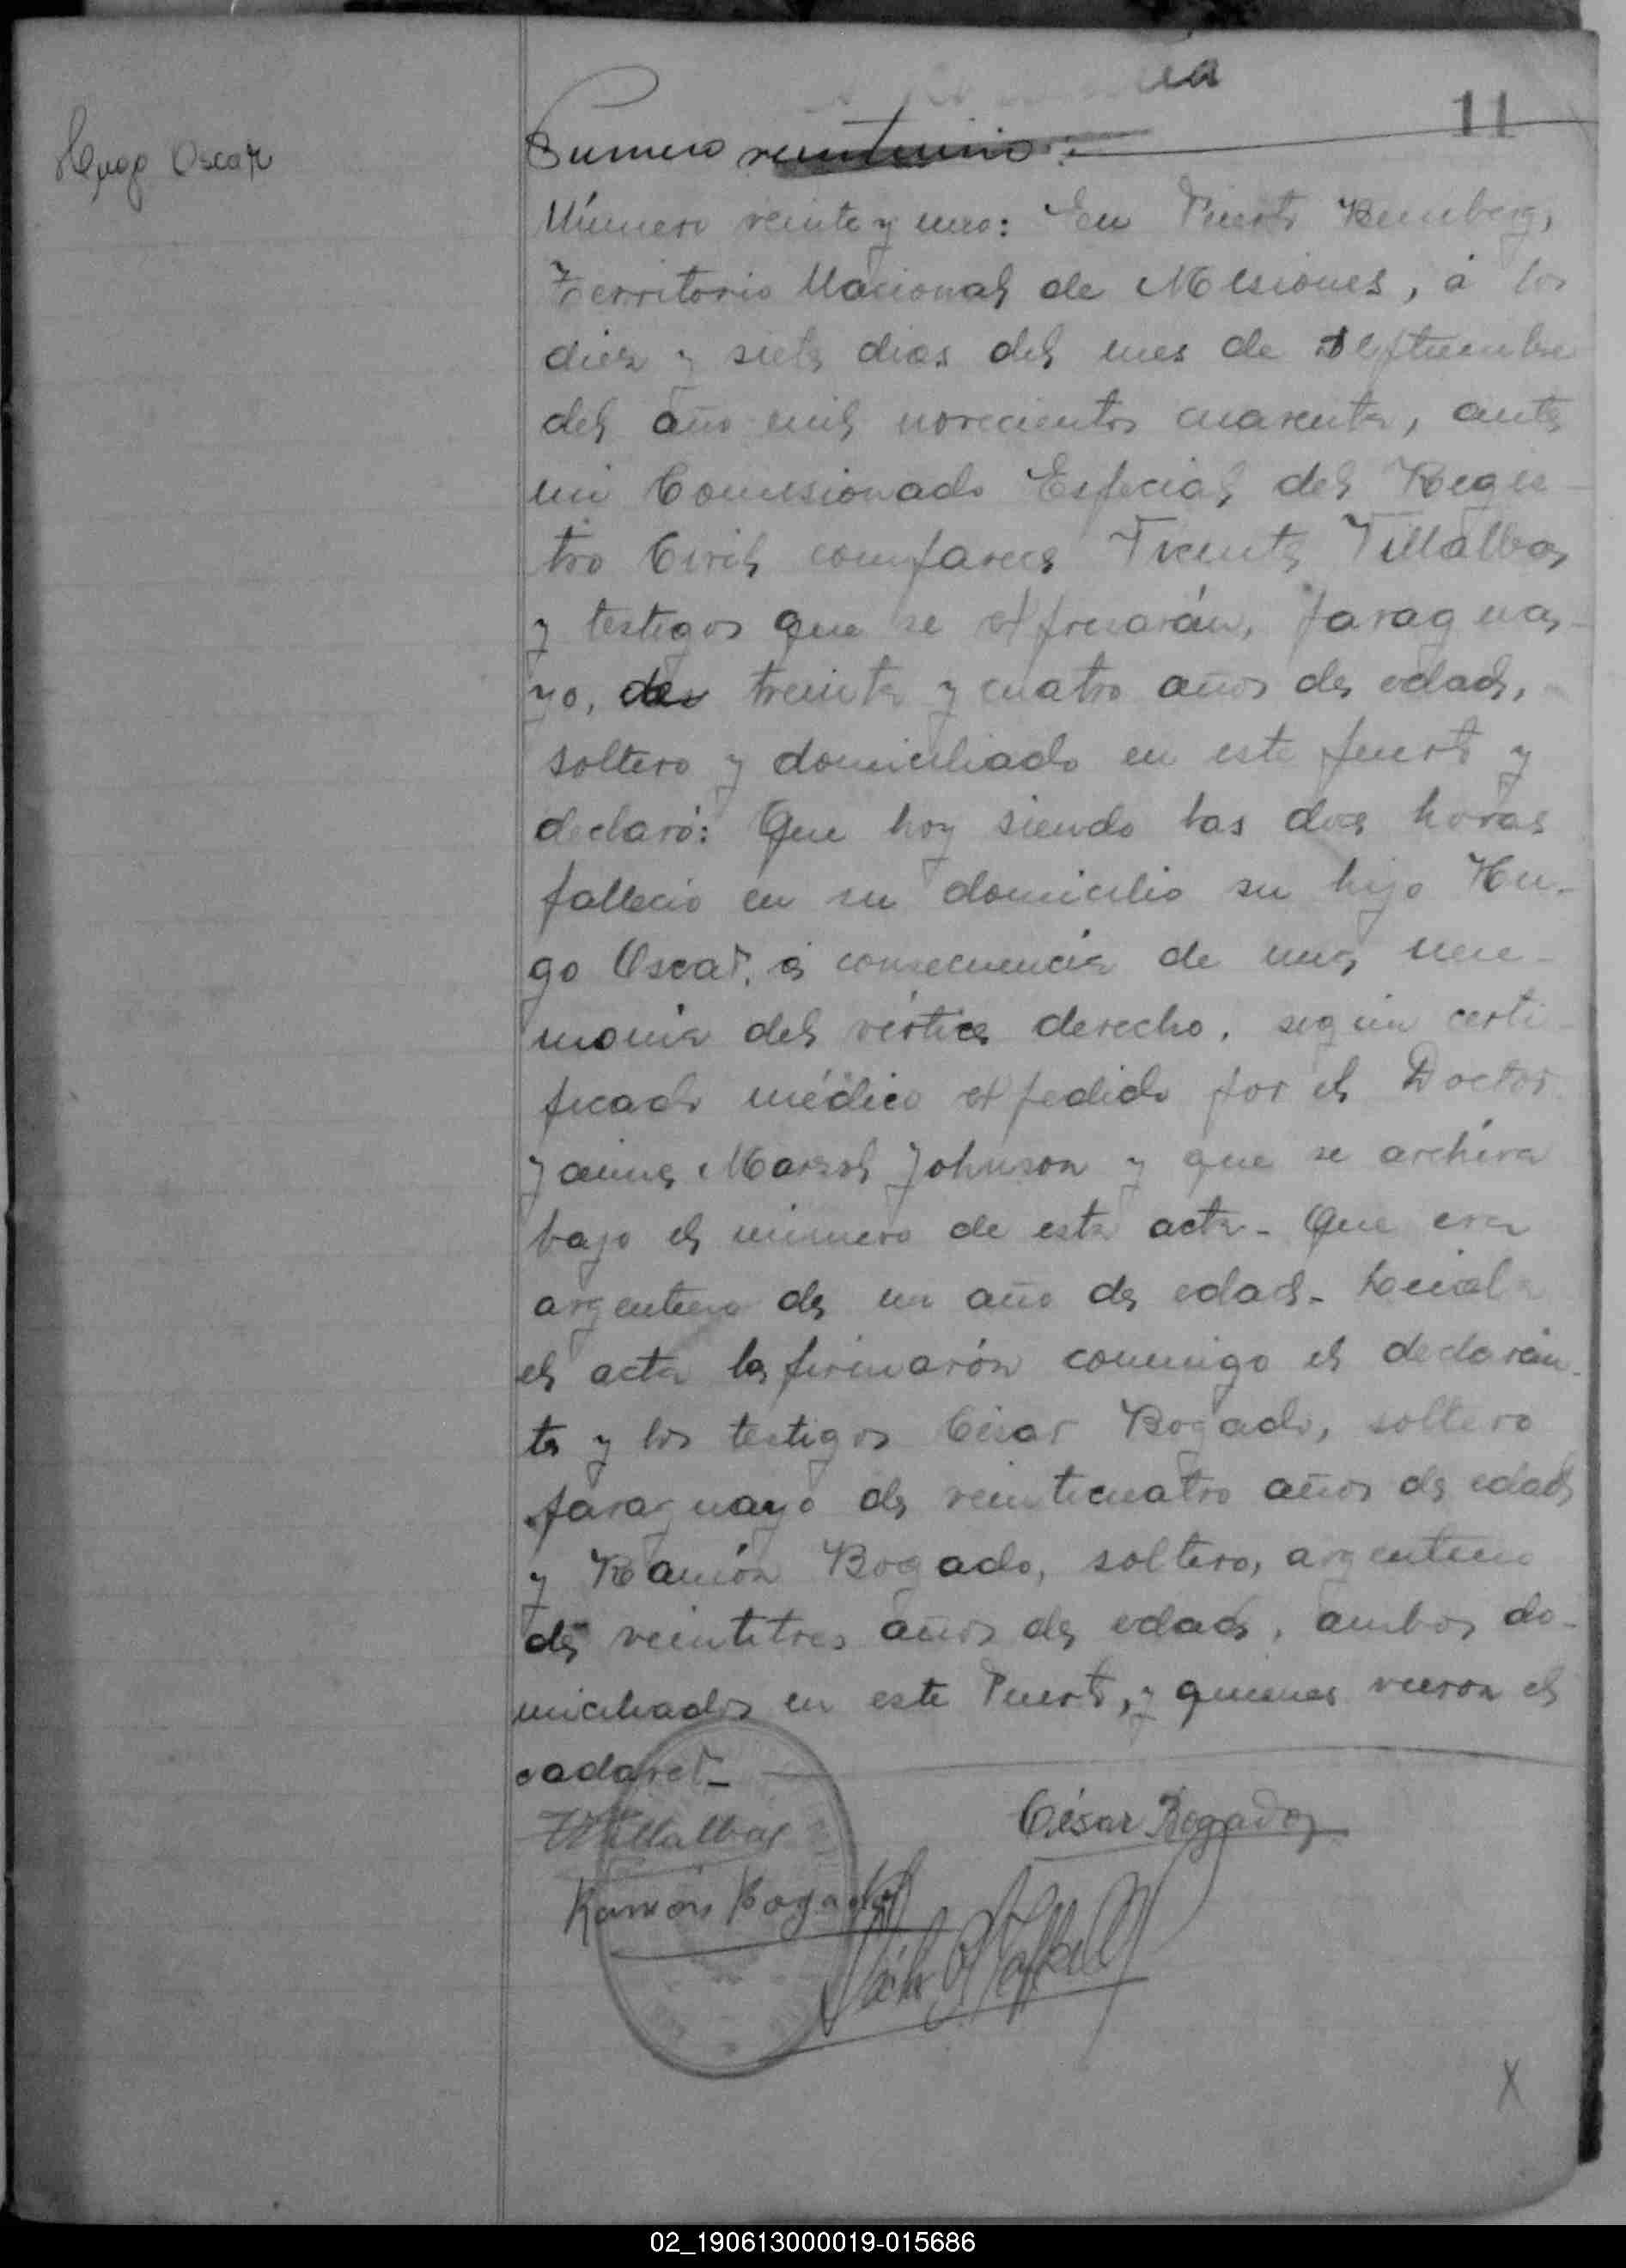 11
Hugo Oscar
Numero veintiuno:
Número veinte y uno: En Puerto Bemberg,
Territorio Nacional de Misiones, á los
diez y siete dias del mes de Septiembre
del año mil novecientos cuarenta, ante
mi Comisionado Especial del Regis-
tro Civil comparece Vicente Villalba
y testigos que se expresarán, paragua-
yo, de treinta y cuatro años de edad,
soltero y domiciliado en este puerto y
declaró: Que hoy siendo las dos horas
falleció en su domicilio su hijo Hu-
go Oscar, á consecuencia de una neu-
monia del vértice derecho, según certi-
ficado médico expedido por el Doctor
Jaime Marsol Johnson y que se archiva
bajo el número de esta acta- Que era
argentino de un año de edad- Leida
el acta la firmarón conmigo el declaran-
te y los testigos César Bogado, soltero
paraguayo de veinticuatro años de edad
y Ramón Bogado, soltero, argentino
de veintitres años de edad, ambos do-
miciliados en este Puerto, y quienes vieron el
cadaver-
VVillalba
César Bogado
Ramón Bogado
X
02_190613000019-015686